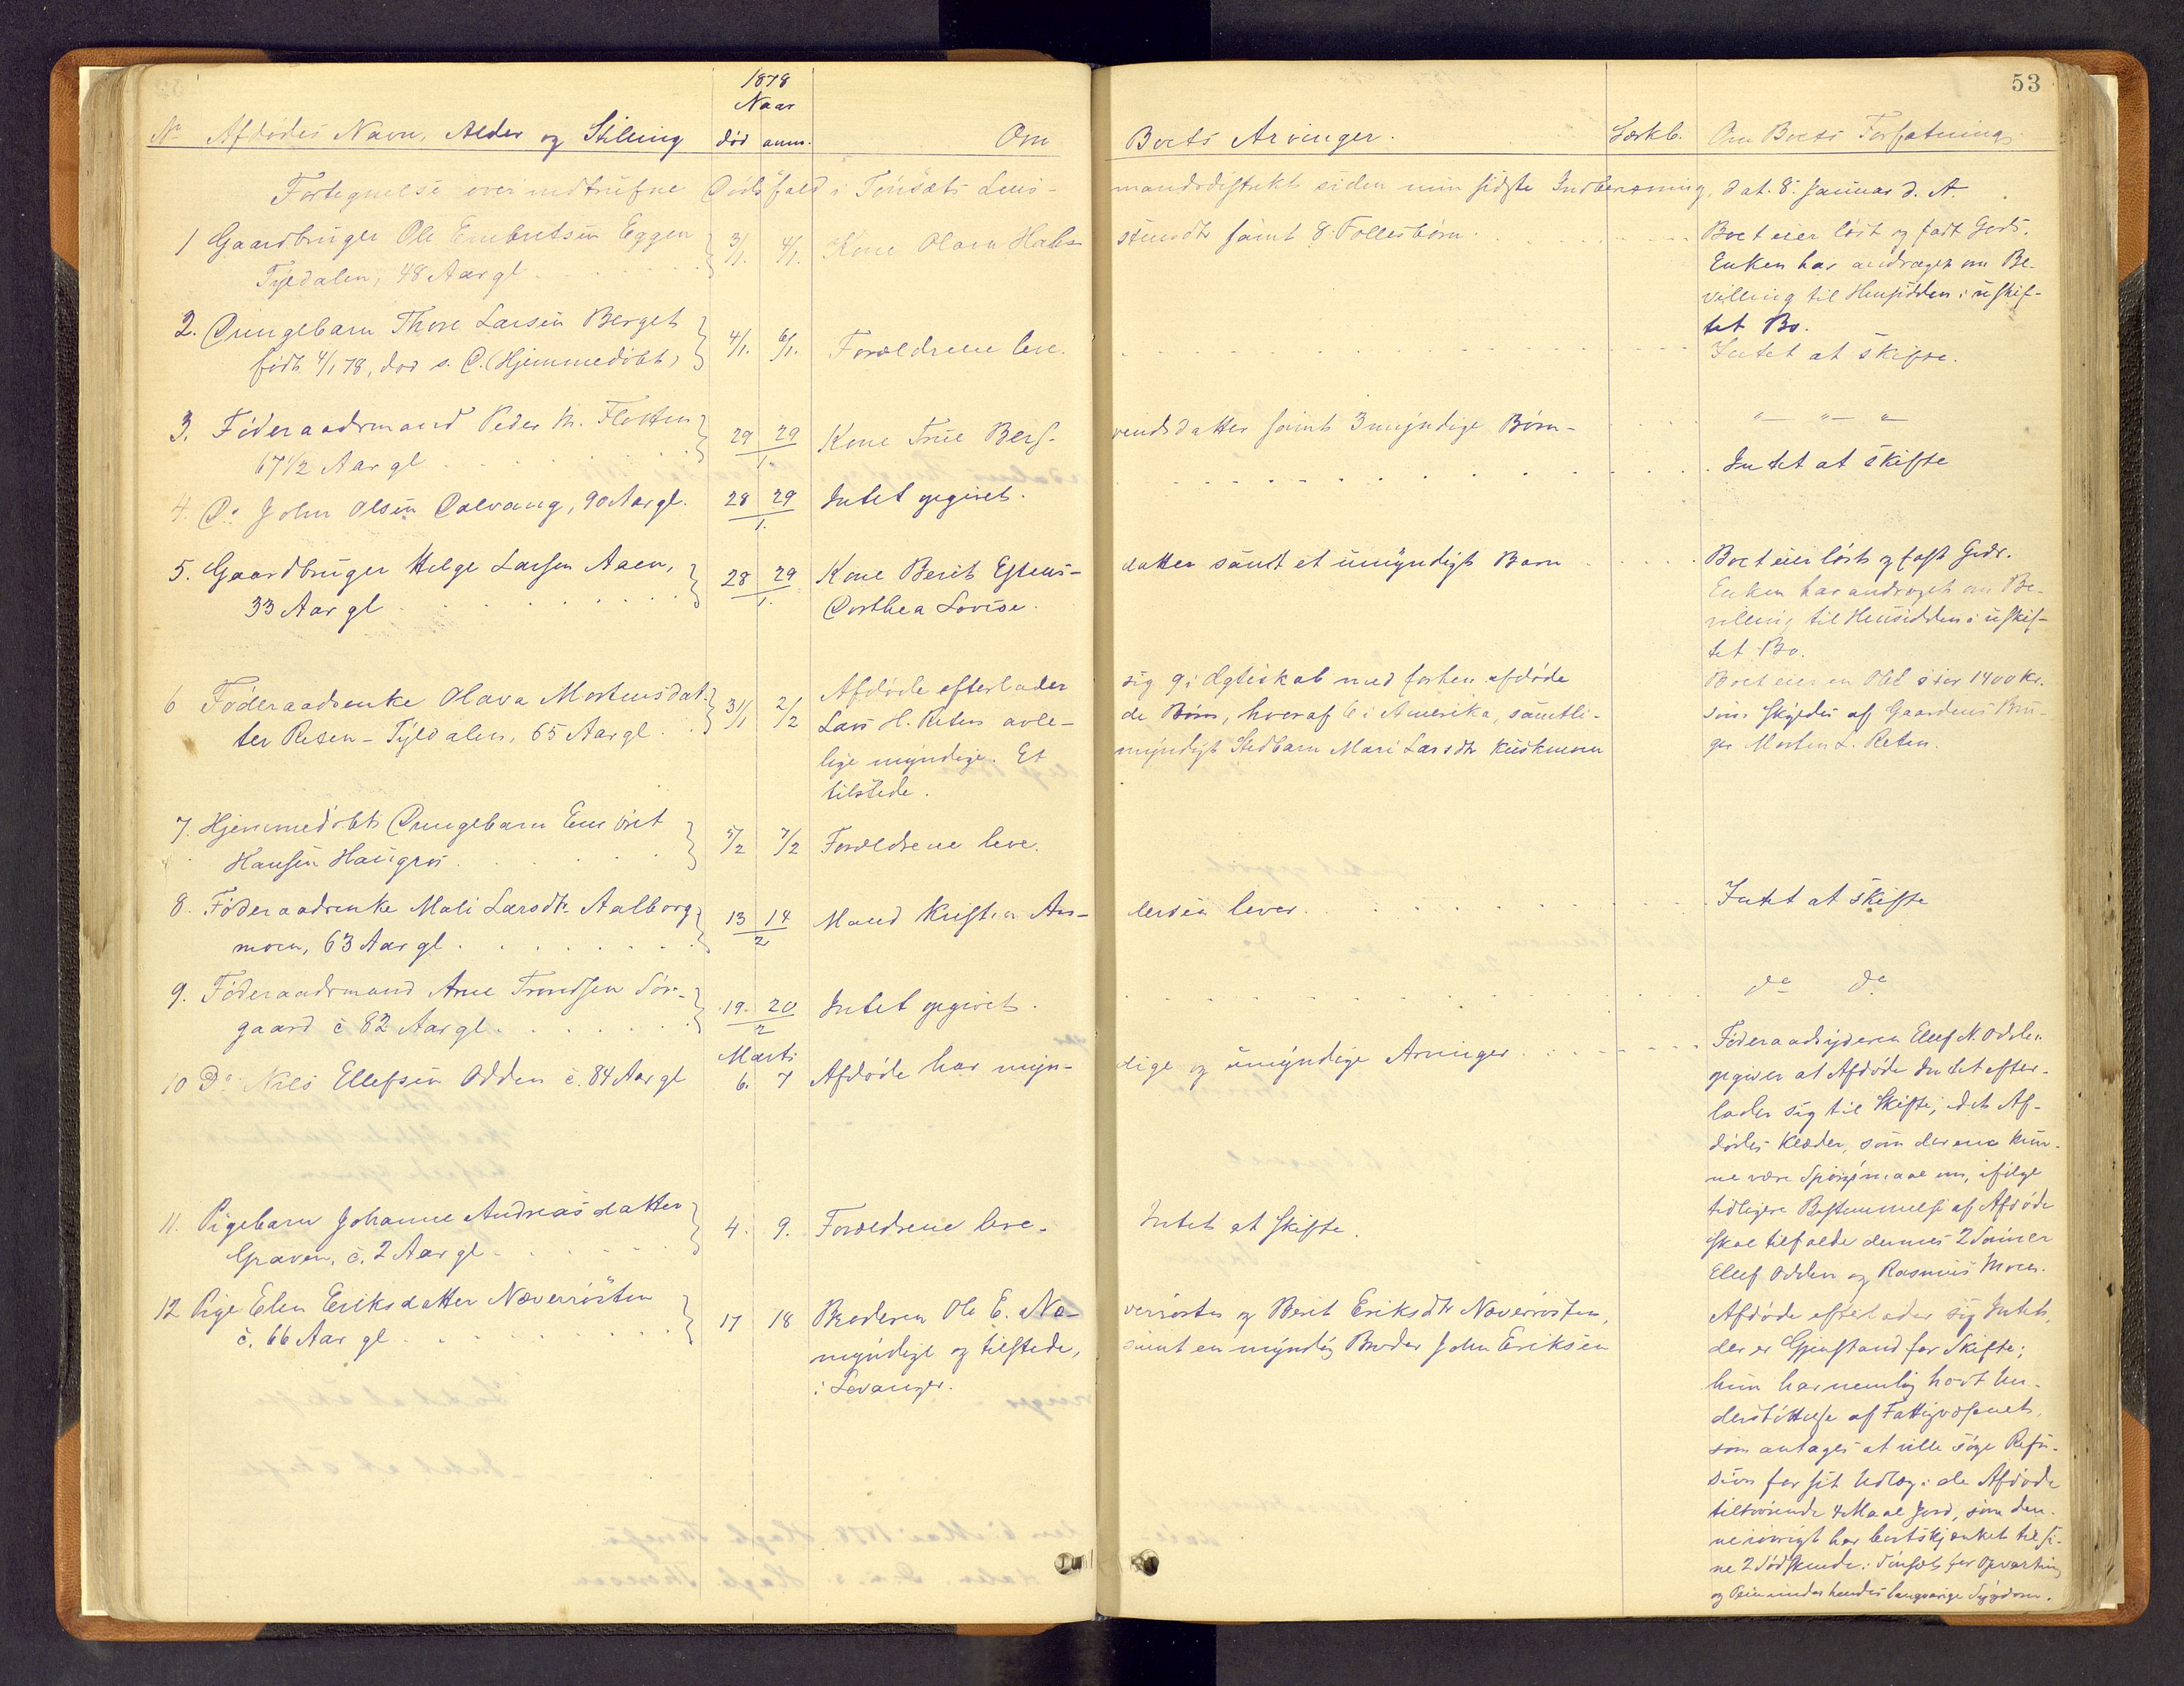 53
1878
Naar
No Afdødes Navn, Alder og Stilling død anm. Om Boets Arvinger. Særkb. Om Boets Forfatning
Fortegnelse over indtrufne Dødsfald i Tönsæts Lens- mandsdistrikt siden min sidste Indberetning, dat. 8. Januar d. A.
1 Gaardbruger Ole Embretsen Eggen 3/1. 4/1. Kone Olava Hals- stensdtr samt 8 Fællesbørn. Boet eier löst og fast Gods.
Tyldalen, 48 Aar gl. Enken har andraget om Be-
villing til Hensidden i uskif-
tet Bo.
2. Drengebarn Thore Larsen Berget 4/1. 6/1. Forældrene leve. Intet at skifte.
født 4/1 78, død s. D. (Hjemmedöbt)
3. Föderaadsmand Peder M. Flotten 29 29/1. Kone True Berf- vendsdatter samt 3 myndige Börn - " — " — "
67 1/2 Aar gl
4. Do John Olsen Dalvang, 90 Aar gl. 28 29/1. Intet opgivet. Intet at skifte
5. Gaardbruger Helge Larsen Aaen, 28 29/1. Kone Berit Estens- datter samt et umyndigt Barn Boet eier löst og fast Gods.
33 Aar gl Dorthea Lovise. Enken har andraget om Be-
villing til Hensidden i uskif-
tet Bo.
6 Föderaadsenke Olava Mortensdat- 31/1 2/2 Afdöde efterlader sig 9 i Ægteskab med forhen afdöde Boet eier en Obl. stor 1400 Kr.
ter Reten - Tyldalen, 65 Aar gl. Lars H. Reten avle- de Börn, hvoraf 6 i Amerika, samtli- som skyldes af Gaardens Bru-
lige myndige. Et myndigt Stedbarn Mari Larsdtr Kuskmoen ger Morten L. Reten.
tilstede.
7. Hjemmedöbt Drengebarn Embret 5/2 7/2 Forældrene leve.
Hansen Haugros
8. Föderaadsenke Mali Larsdtr Aalborg- 13 14/2 Mand Kristian An- dersen lever. Intet at skifte
moen, 63 Aar gl.
9. Föderaadsmand Arne Trondsen Sör- 19. 20/2 Intet opgivet. do do
gaard c 82 Aar gl.
Marts
10 Do Nils Ellefsen Odden c. 84 Aar gl 6. 7 Afdöde har myn- dige og umyndige Arvinger. Föderaadsyderen Ellef N. Odden
opgiver at Afdöde Intet efter-
lader sig til Skifte, idet Af-
dödes Klæder, som der ene kun-
ne være Spörgsmaal om, ifölge
tidligere Bestemmelse af Afdöde
skal tilfalde dennes 2 Sönner
Ellef Odden og Rasmus Moen.
11. Pigebarn Johanne Andreasdatter 4. 9. Forældrene leve. Intet at skifte.
Graven, c. 2 Aar gl.
12 Pige Elen Eriksdatter Næverrösten 17 18 Broderen Ole E. Næ- verrösten og Berit Eriksdtr Næverrösten, Afdöde efterlader sig Intet,
c. 66 Aar gl. myndige og tilstede, samt en myndig Broder John Eriksen der er Gjenstand for Skifte;
i Levanger. hun har nemlig havt Un-
derstöttelse af Fattigvæsenet,
som antages at ville söge Refu-
sion for sit Udlæg i de Afdöde
tilhörende 4 Maal Jord, som den-
ne iövrigt har bortskjænket til si-
ne 2 Södskende i Tönsæt for Opvartning
og Pleie under hendes langvarige Sygdom.